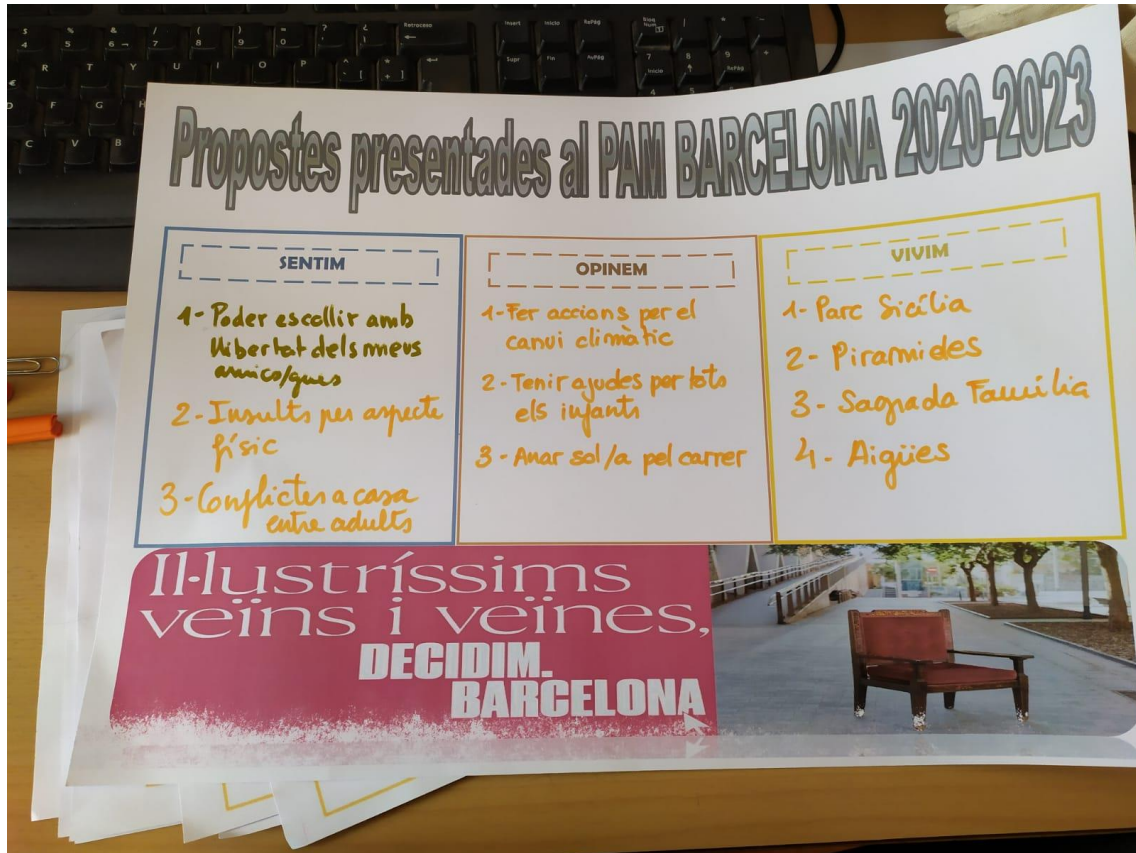 Retroceso
Insert Inicio RePág
Supr Fin AvPág
Bloq Num
Inicio RePág
R T Y U I O P
D F G H
C V B
Propostes presentades al PAM BARCELONA 2020-2023
SENTIM
1- Poder escollir amb
llibertat dels meus
amics/gues
2- Insults per aspecte
físic
3- Conflictes a casa
entre adults
OPINEM
1- Fer accions per el
canvi climàtic
2- Tenir ajudes per tots
els infants
3- Anar sol/a pel carrer
VIVIM
1- Parc Sicília
2- Piramides
3- Sagrada Família
4- Aigües
Il·lustríssims
veïns i veïnes,
DECIDIM.
BARCELONA